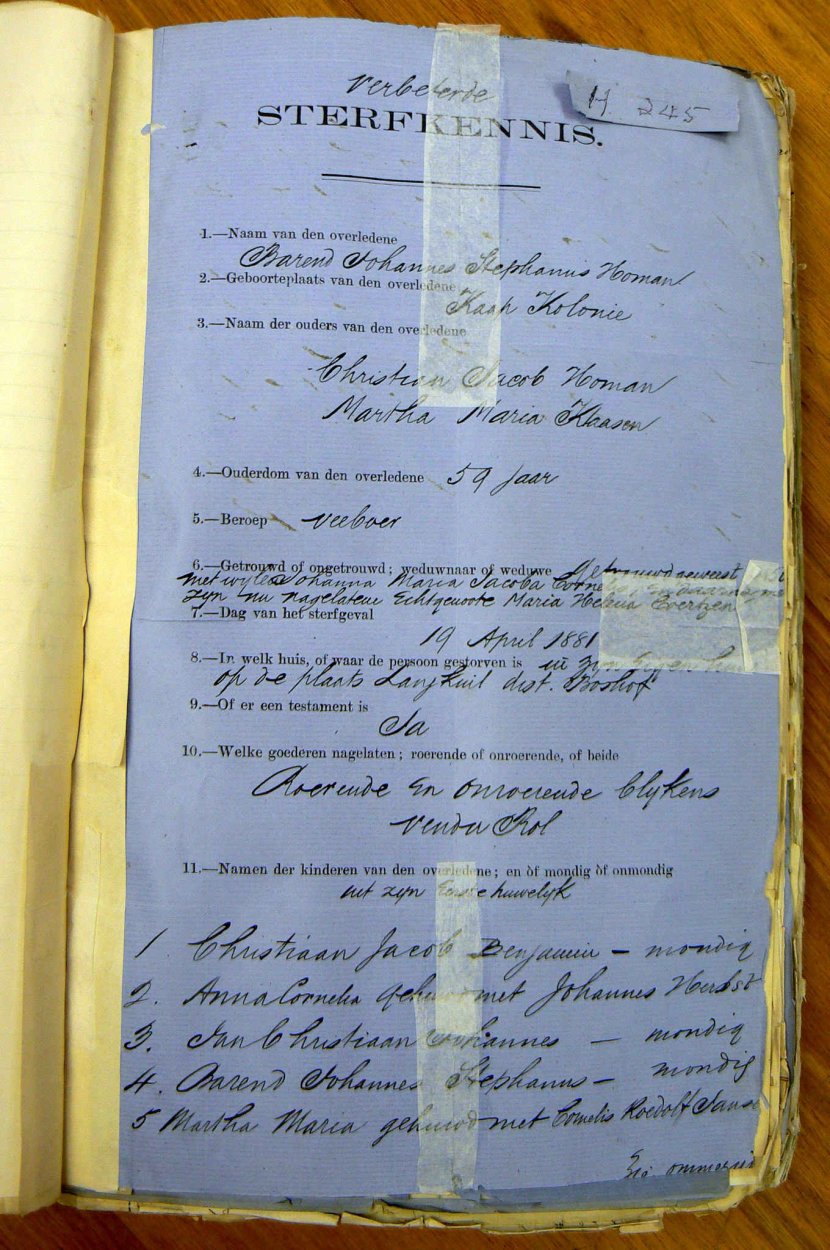 Verbeterde
H 245
STERFKENNIS.
1.—Naam van den overledene
Barend Johannes Stephanus Homan
2.—Geboorteplaats van den overledene
Kaap Kolonie
3.—Naam der ouders van den overledene
Christian Jacob Homan
Martha Maria Klaasen
4.—Ouderdom van den overledene 59 jaar
5.—Beroep veeboer
6.—Getrouwd of ongetrouwd; weduwnaar of weduwe getrouwd geweest
met wylen Johanna Maria Jacoba en daarna met
zyn nu nagelatene Echtgenoote Maria Helena Coertzen
7.—Dag van het sterfgeval
19 April 1881
8.—In welk huis, of waar de persoon gestorven is in zyn eigen huis
op de plaats Langkuil dist. Boshof
9.—Of er een testament is
Ja
10.—Welke goederen nagelaten; roerende of onroerende, of beide
Roerende en onroerende blykens
Vendu Rol
11.—Namen der kinderen van den overledene; en òf mondig òf onmondig
uit zyn Eerste huwelyk
1 Christiaan Jacob Benjamin – mondig
2. Anna Cornelia gehuwd met Johannes Herbst
3. Jan Christiaan Johannes – mondig
4. Barend Johannes Stephanus – mondig
5 Martha Maria gehuwd met Cornelis Roedolf Janse
Zie ommezyd